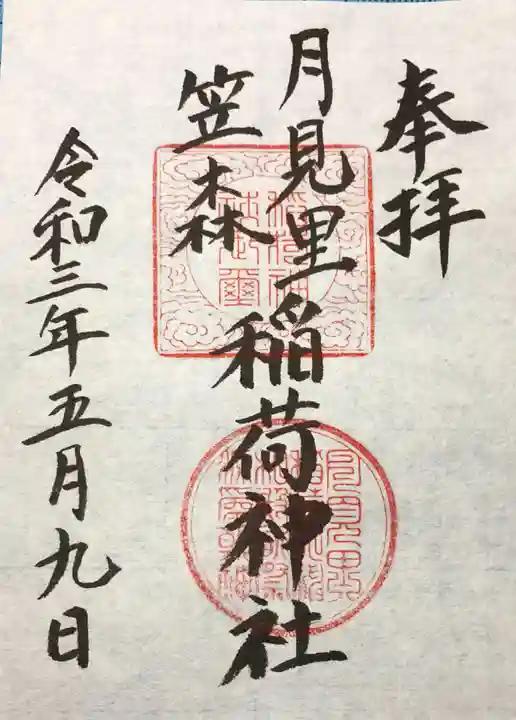 奉拝
月見里稲荷神社
笠森
令和三年五月九日